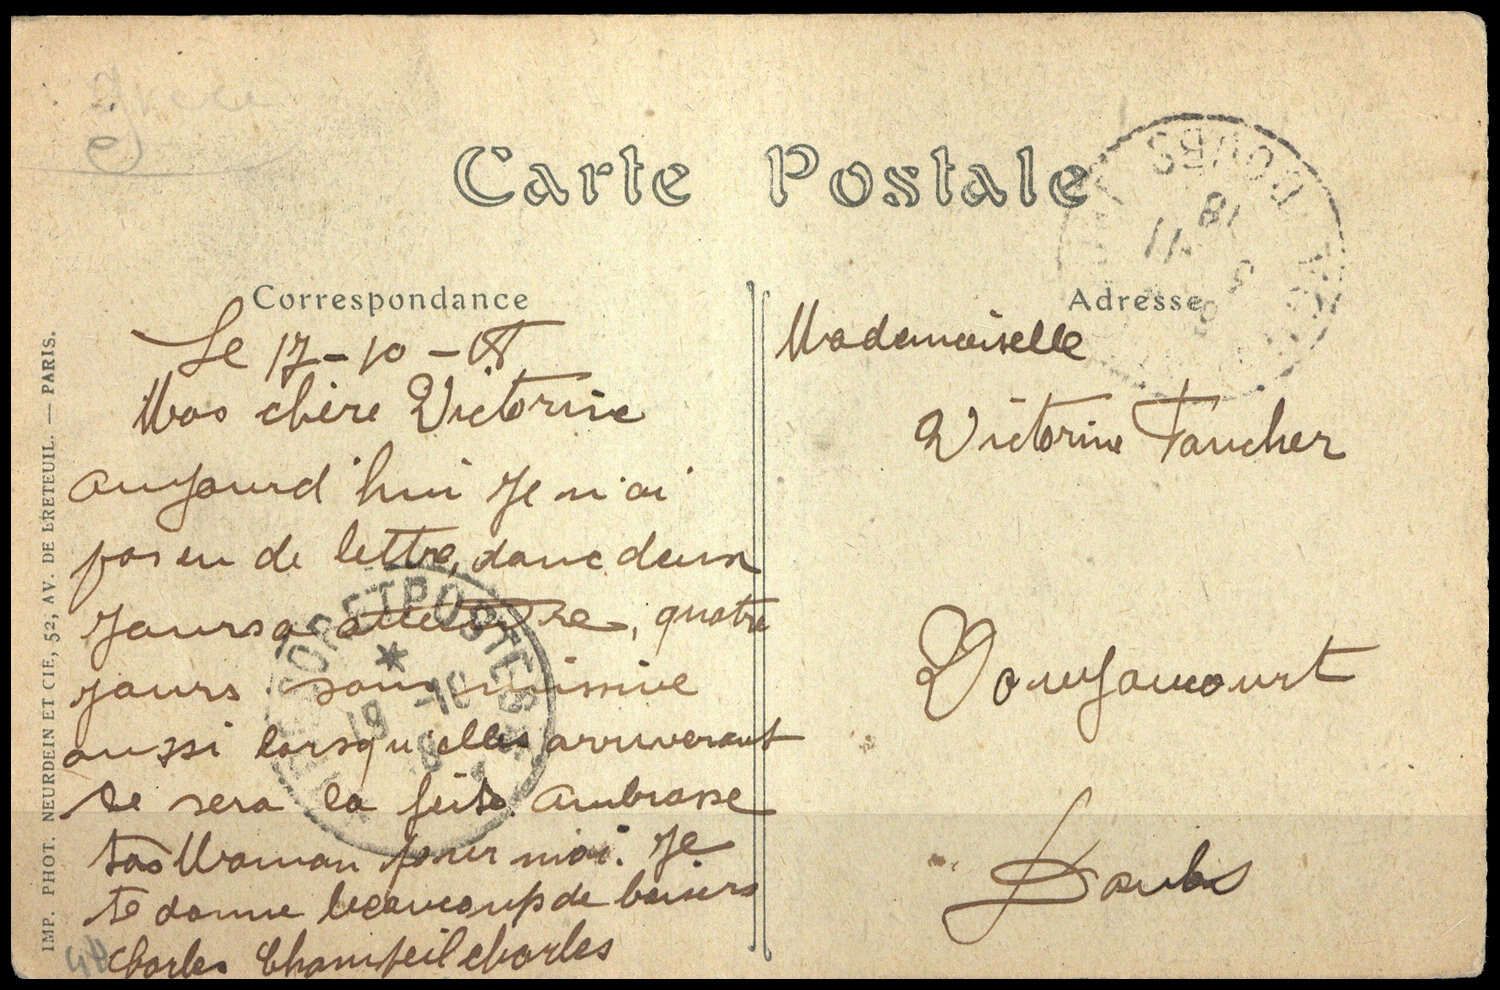 Carte Postale
Correspondance
Le 17-10-18
Mas chère Victorine
aujourd'hui Je n'ai
pas eu de lettre, donc deux
Jours a attendre, quatre
jours sans missive
aussi lorsqu'elles arriveront
se sera la fête. Ambrasse
tas Maman pour moi. Je
te donne beaucoup de baisers
Charles Champeil Charles
Adresse
Mademoiselle
Victorine Faucher
Voujaucourt
Doubs
IMP. PHOT. NEURDEIN ET CIE, 52, AV. DE BRETEUIL. — PARIS.
TRESOR ET POSTES
19 -10
DOUBS
11
18